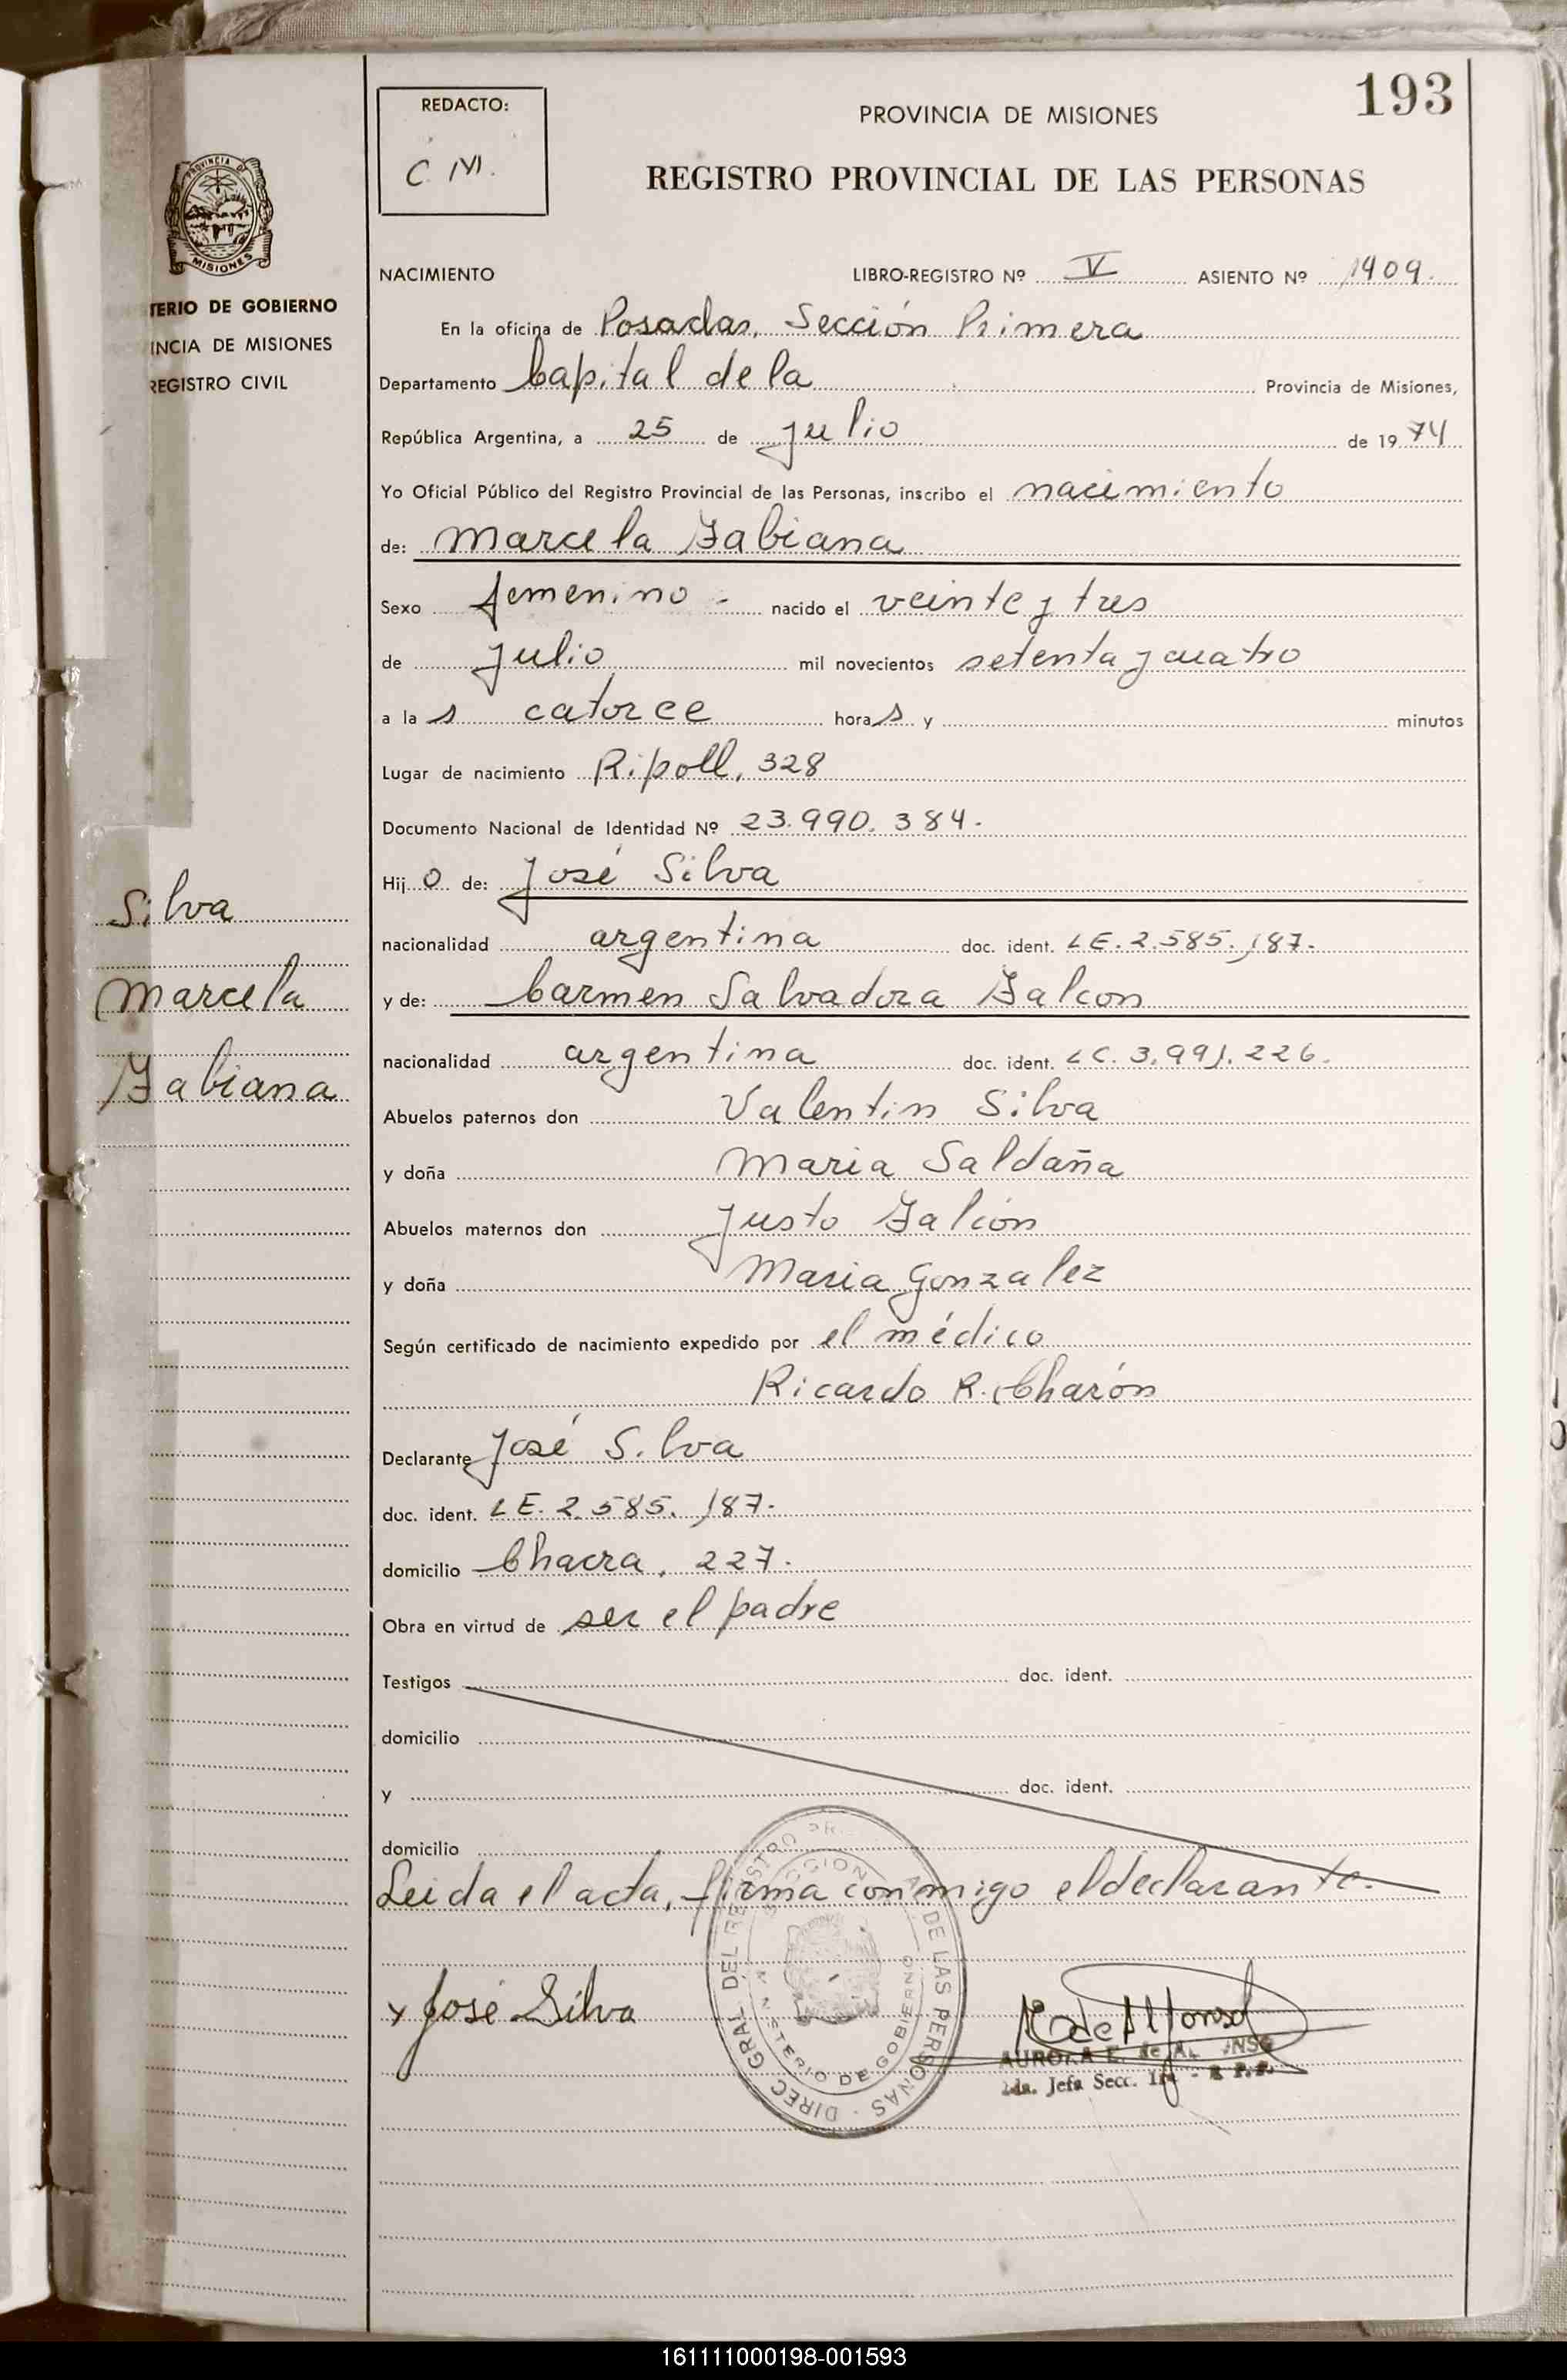 193
REDACTO:
C. M.
PROVINCIA DE MISIONES
REGISTRO PROVINCIAL DE LAS PERSONAS
PROVINCIA DE
MISIONES
TERIO DE GOBIERNO
INCIA DE MISIONES
REGISTRO CIVIL
Silva
Marcela
Fabiana
NACIMIENTO LIBRO-REGISTRO Nº V ASIENTO Nº 1909.
En la oficina de Posadas, Sección Primera
Departamento Capital de la Provincia de Misiones,
República Argentina, a 25 de julio de 1974
Yo Oficial Público del Registro Provincial de las Personas, inscribo el nacimiento
de: Marcela Fabiana
Sexo femenino - nacido el veinte y tres
de julio mil novecientos setenta y cuatro
a las catorce horas y minutos
Lugar de nacimiento Ripoll, 328
Documento Nacional de Identidad Nº 23.990.384.
Hijo de: José Silva
nacionalidad argentina doc. ident. LE. 2.585.187.
y de: Carmen Salvadora Falcon
nacionalidad argentina doc. ident. LC. 3.991.226.
Abuelos paternos don Valentin Silva
y doña Maria Saldaña
Abuelos maternos don Justo Falcón
y doña Maria Gonzalez
Según certificado de nacimiento expedido por el médico
Ricardo R. Charón
Declarante José Silva
doc. ident. LE. 2.585.187.
domicilio Chacra, 227.
Obra en virtud de ser el padre
Testigos doc. ident.
domicilio
y doc. ident.
domicilio
Leida el acta, firma conmigo el declarante.
DIREC GRAL DEL REGISTRO PR. DE LAS PERSONAS
MINISTERIO DE GOBIERNO
x José Silva
AURORA E. de
Jefa Secc.
161111000198-001593